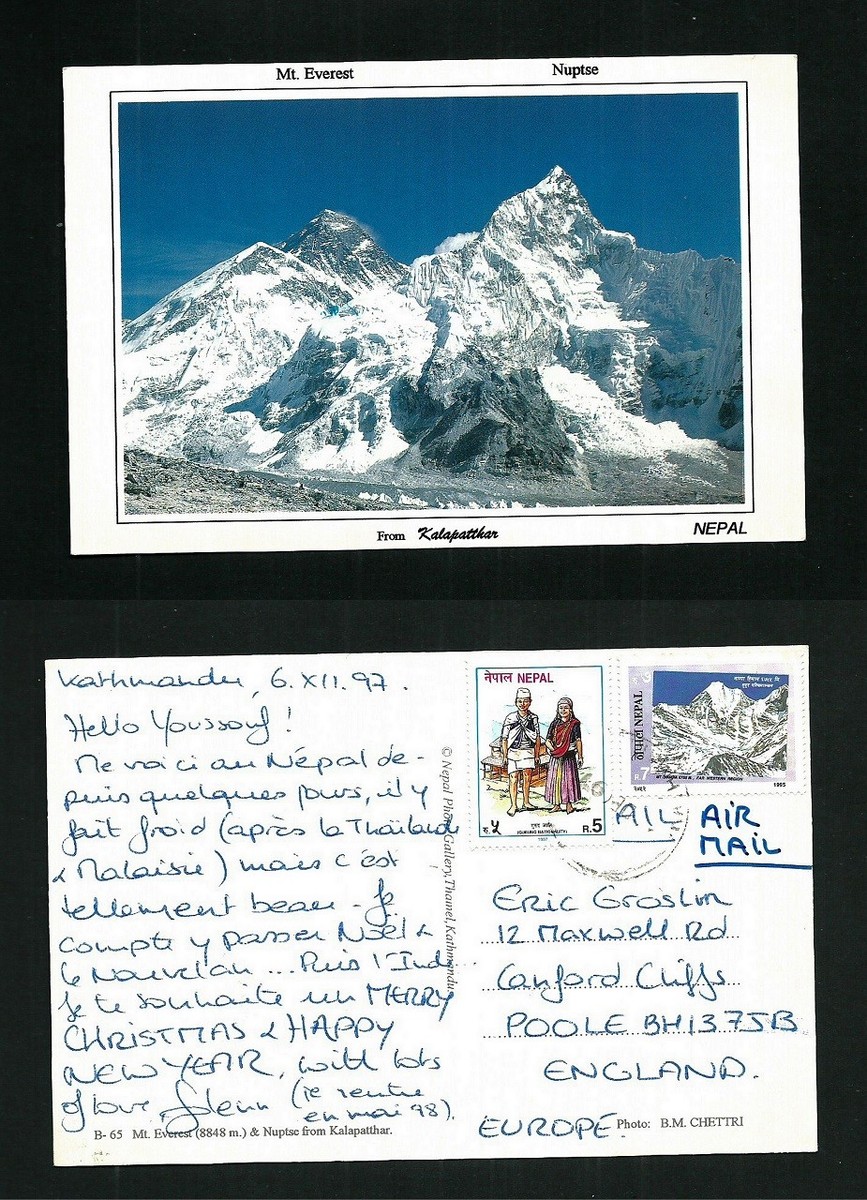 Mt. Everest
Nuptse
From Kalapatthar
NEPAL
Kathmandu, 6.XII.97.
Hello Youssouf!
Me voici au Népal de-
puis quelques jours, il y
fait froid (après la Thaïlande
& Malaisie) mais c'est
tellement beau - Je
compte y passer Noël &
le Nouvel an ... Puis l'Inde
Je te souhaite un MERRY
CHRISTMAS & HAPPY
NEW YEAR, with lots
of love, Glenn (je rentre
en mai 98).
B- 65 Mt. Everest (8848 m.) & Nuptse from Kalapatthar.
© Nepal Photo Gallery, Thamel, Kathmandu
नेपाल NEPAL
रु. ५
R.5
1997
नेपाल NEPAL
R.7
FAR WESTERN REGION
1995
AIL
AIR
MAIL
Eric Groslin
12 Maxwell Rd
Canford Cliffs
POOLE BH13 7JB
ENGLAND.
EUROPE.
Photo: B.M. CHETTRI